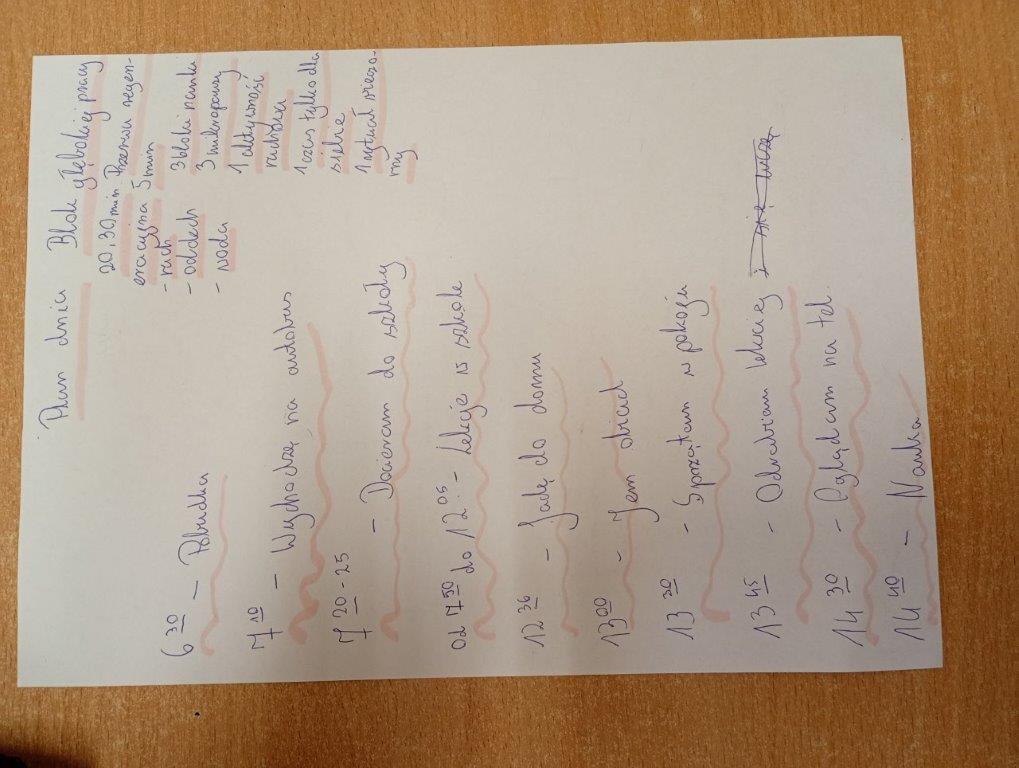 Plan dnia
Blok głębokiej pracy
20, 30 min Przerwa regen-
eracyjna 5 min
- ruch
- oddech
- woda
3 bloki nauki
3 mikroprzerwy
1 aktywność
ruchowa
1 czas tylko dla
siebie
1 rytuał wieczo-
rny
6 30 - Pobudka
7 10 - Wychodzę na autobus
7 20-25 - Docieram do szkoły
od 7 50 do 12 05 - Lekcje w szkole
12 36 - Jadę do domu
13 00 - Jem obiad
13 30 - Sprzątam w pokoju
13 45 - Odrabiam lekcje
14 30 - Oglądam na tel.
14 40 - Nauka